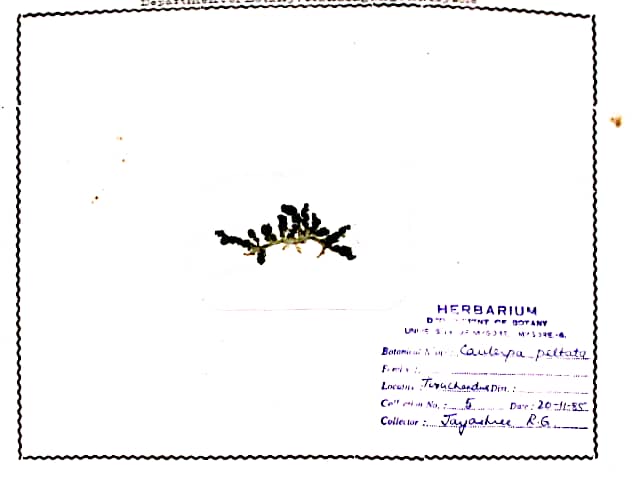 HERBARIUM
DEPARTMENT OF BOTANY
UNIVERSITY OF MYSORE, MYSORE-6.
Botanical Name : Caulerpa peltata
Family :
Locality : Tiruchendur Dist. :
Collection No. : 5 Date : 20-11-85
Collector : Jayashree R.G